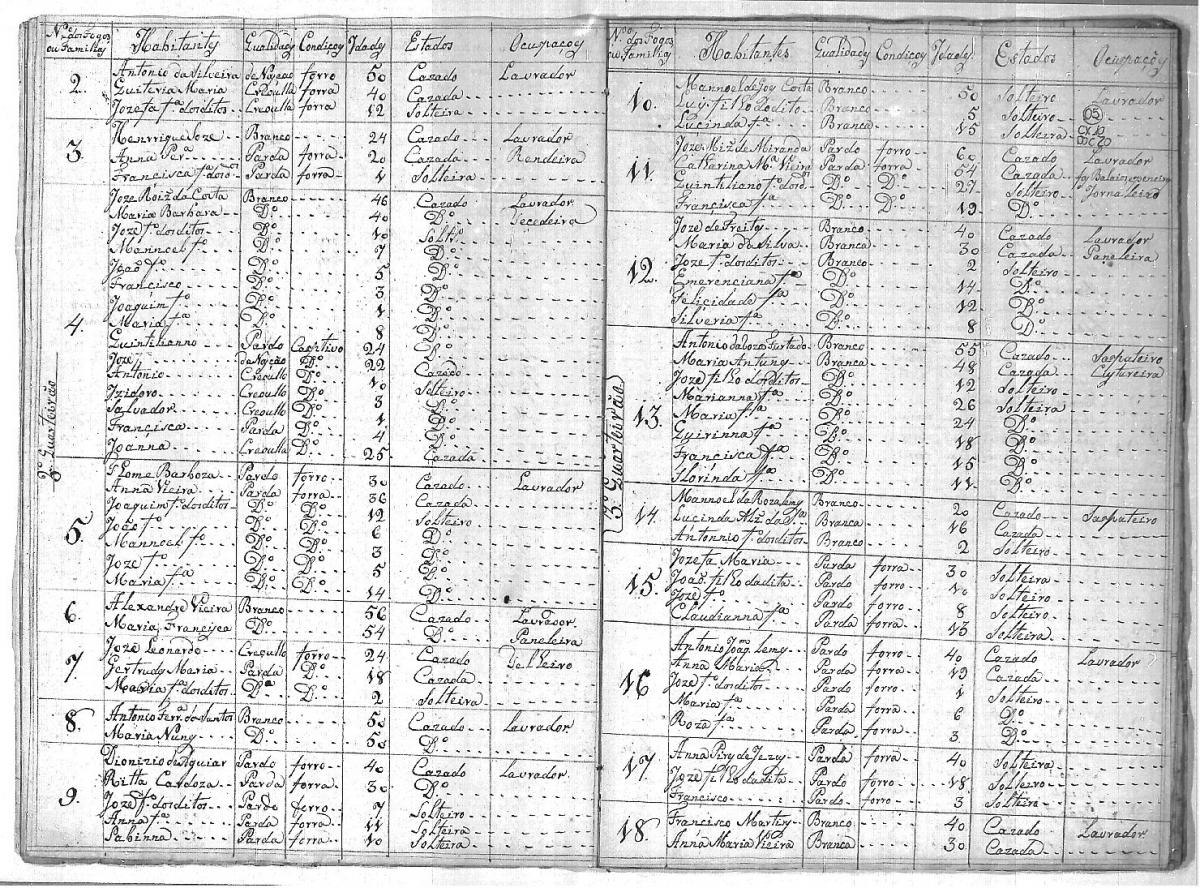 N.os dos Fogos ou Familias Habitantes Qualidades Condiçoes Idades Estados Ocupaçoes
3º Quarteirão
2. Antonio da Silveira de Naçao forro 50 Cazado Lavrador
Quiteria Maria Creoulla forra 40 Cazada
Jozefa fª dos ditos Creoulla forra 12 Solteira
3. Henrrique Joze Branco 24 Cazado Lavrador
Anna Perª Parda forra 20 Cazada Rendeira
Francisca fª dos d.os Parda forra 1 Solteira
4. Joze Roiz da Costa Branco 46 Cazado Lavrador
Maria Barbara Dº 40 Dº Tecedeira
Joze fº dos ditos Dº 10 Soltrº
Mannoel fº Dº 7 Dº
João fº Dº 5 Dº
Francisco Dº 3 Dº
Joaquim fº Dº 1 Dº
Maria fª Dº 8 Dº
Quintilianno Pardo Captivo 24 Dº
Joze da Nação Dº 22 Cazado
Antonio Creoullo Dº 10 Solteiro
Izidoro Creoullo Dº 3 Dº
Salvador Creoullo Dº 1 Dº
Francisca Parda Dº 4 Dº
Joanna Creoulla Dº 25 Cazada
5. Thome Barboza Pardo forro 30 Cazado Lavrador
Anna Vieira Parda forra 36 Cazada
Joaquim fº dos ditos Dº Dº 12 Solteiro
João fº Dº Dº 6 Dº
Mannoel fº Dº Dº 3 Dº
Joze fº Dº Dº 5 Dº
Maria fª Dº Dº 14 Dº
6. Alexandre Vieira Branco 56 Cazado Lavrador
Maria Francisca Dº 54 Dº Paneleira
7. Joze Leonardo Creoullo forro 24 Cazado
Gertrudes Maria Parda Dº 18 Cazada
Maria fª dos ditos Dª Dº 2 Solteira
8. Antonio Ferrª dos Santos Branco 50 Cazado Lavrador
Maria Nunes Dº 50 Dº
9. Dionizio de Aguiar Pardo forro 40 Cazado Lavrador
Ritta Cardoza Parda forra 30 Dº
Joze fº dos ditos Pardo forro 7 Solteiro
Anna fª Parda forra 11 Solteira
Sabinna Parda forra 10 Solteira
N.os dos Fogos ou Familias Habitantes Qualidades Condiçoes Idades Estados Ocupações
3º Quarteirão
10. Mannoel de Goy Costa Branco 50 Solteiro Lavrador
Luis filho do dito Branco 5 Solteiro 05
Lucinda fª Branca 15 Solteira CX 10
DOC 20
11. Joze Miz de Miranda Pardo forro 60 Cazado Lavrador
Catharina Mª Vieira Parda forra 54 Cazada
Quintiliano fº dos d.os Dº Dº 27 Solteiro Jornaleiro
Francisca fª Dº Dº 19 Dº
12. Joze de Freitas Branco 40 Cazado Lavrador
Maria da Silva Branca 30 Cazada Paneleira
Joze fº dos ditos Branco 2 Solteiro
Emerenciana fª Dº 14 Dº
Felicidade fª Dº 12 Dº
Silveria fª Dº 8 Dº
13. Antonio da Coza Furtado Branco 55 Cazado Sapateiro
Maria Antunes Branca 48 Cazada
Joze filho dos ditos Dº 12 Solteiro
Marianna fª Dº 26 Solteira
Maria fª Dº 24 Dº
Quirinna fª Dº 18 Dº
Francisca fª Dº 15 Dº
Florinda fª Dº 11 Dº
14. Mannoel da Roza Lemes Branco 20 Cazado Sapateiro
Lucinda Branca 16 Cazada
Antonnio fº dos ditos Branco 2 Solteiro
15. Jozefa Maria Parda forra 30 Solteira
João filho da dita Pardo forro 10 Solteiro
Joze fº Pardo forro 8 Solteiro
Claudianna fª Parda forra 13 Solteira
16. Antonio Joaqm Lemes Pardo forro 40 Cazado Lavrador
Anna Maria Parda forra 19 Cazada
Joze fº dos ditos Pardo forro 1 Solteiro
Maria fª Parda forra 6 Dº
Roza fª Parda forra 3 Dº
17. Anna Pires de Jezus Parda forra 40 Solteira
Joze filho da dita Pardo forro 18 Solteiro
Francisco Pardo forro 3 Solteiro
18. Francisco Martins Branco 40 Cazado Lavrador
Anna Maria Vieira Branca 30 Cazada